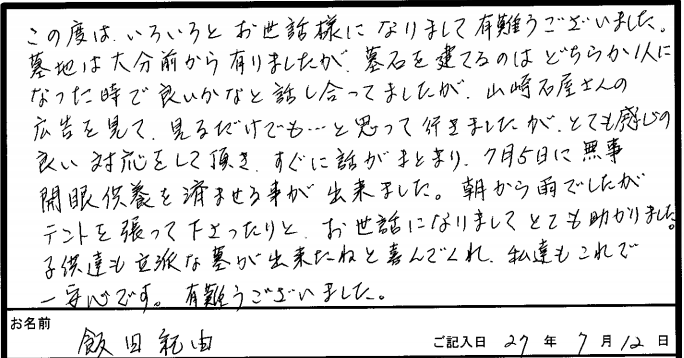 この度は、いろいろと お世話様に なりまして 有難うございました。
墓地は大分前から 有りましたが、墓石を 建てるのは どちらか1人に
なった時で 良いかなと 話し合ってましたが、山崎石屋さんの
広告を見て、見るだけでも…と思って 行きましたが、とても感じの
良い 対応をして頂き、すぐに 話がまとまり、7月5日に 無事
開眼供養を 済ませる事が 出来ました。朝から 雨でしたが
テントを張って下さったりと、お世話になりまして とても 助かりました。
子供達も 立派な 墓が出来たねと 喜んでくれ、私達も これで
一安心です。有難うございました。
お名前 飯田 ご記入日 27 年 7 月 12 日